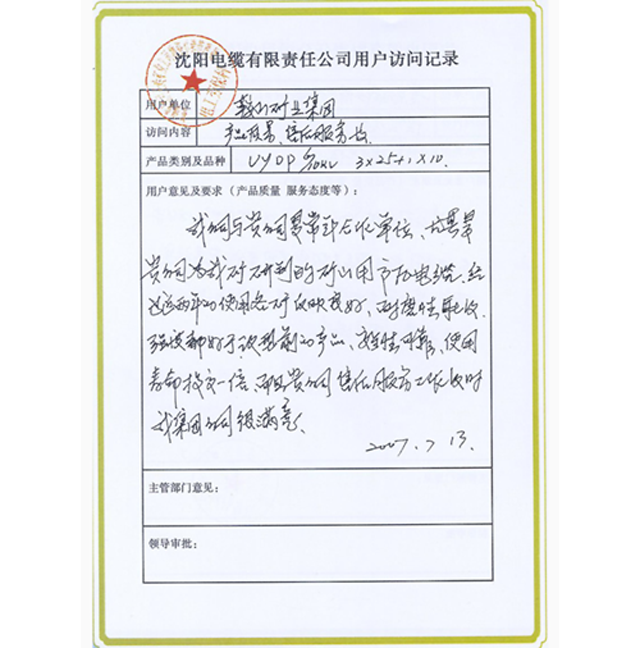 沈阳电缆有限责任公司用户访问记录
用户单位 鞍山矿业集团
访问内容 产品质量、售后服务
产品类别及品种 UYDP 6/10KV 3×25+1×10.
用户意见及要求（产品质量 服务态度等）：
我公司与贵公司是常年合作单位、尤其是
贵公司为我矿研制的矿山用高压电缆.经
过这两年的使用各矿反映良好、耐磨性
强度都好于改型前的产品、安全性可靠、使用
寿命提高一倍、而且贵公司售后服务工作及时
我集团公司很满意、
2007.7 13.
主管部门意见：
领导审批：